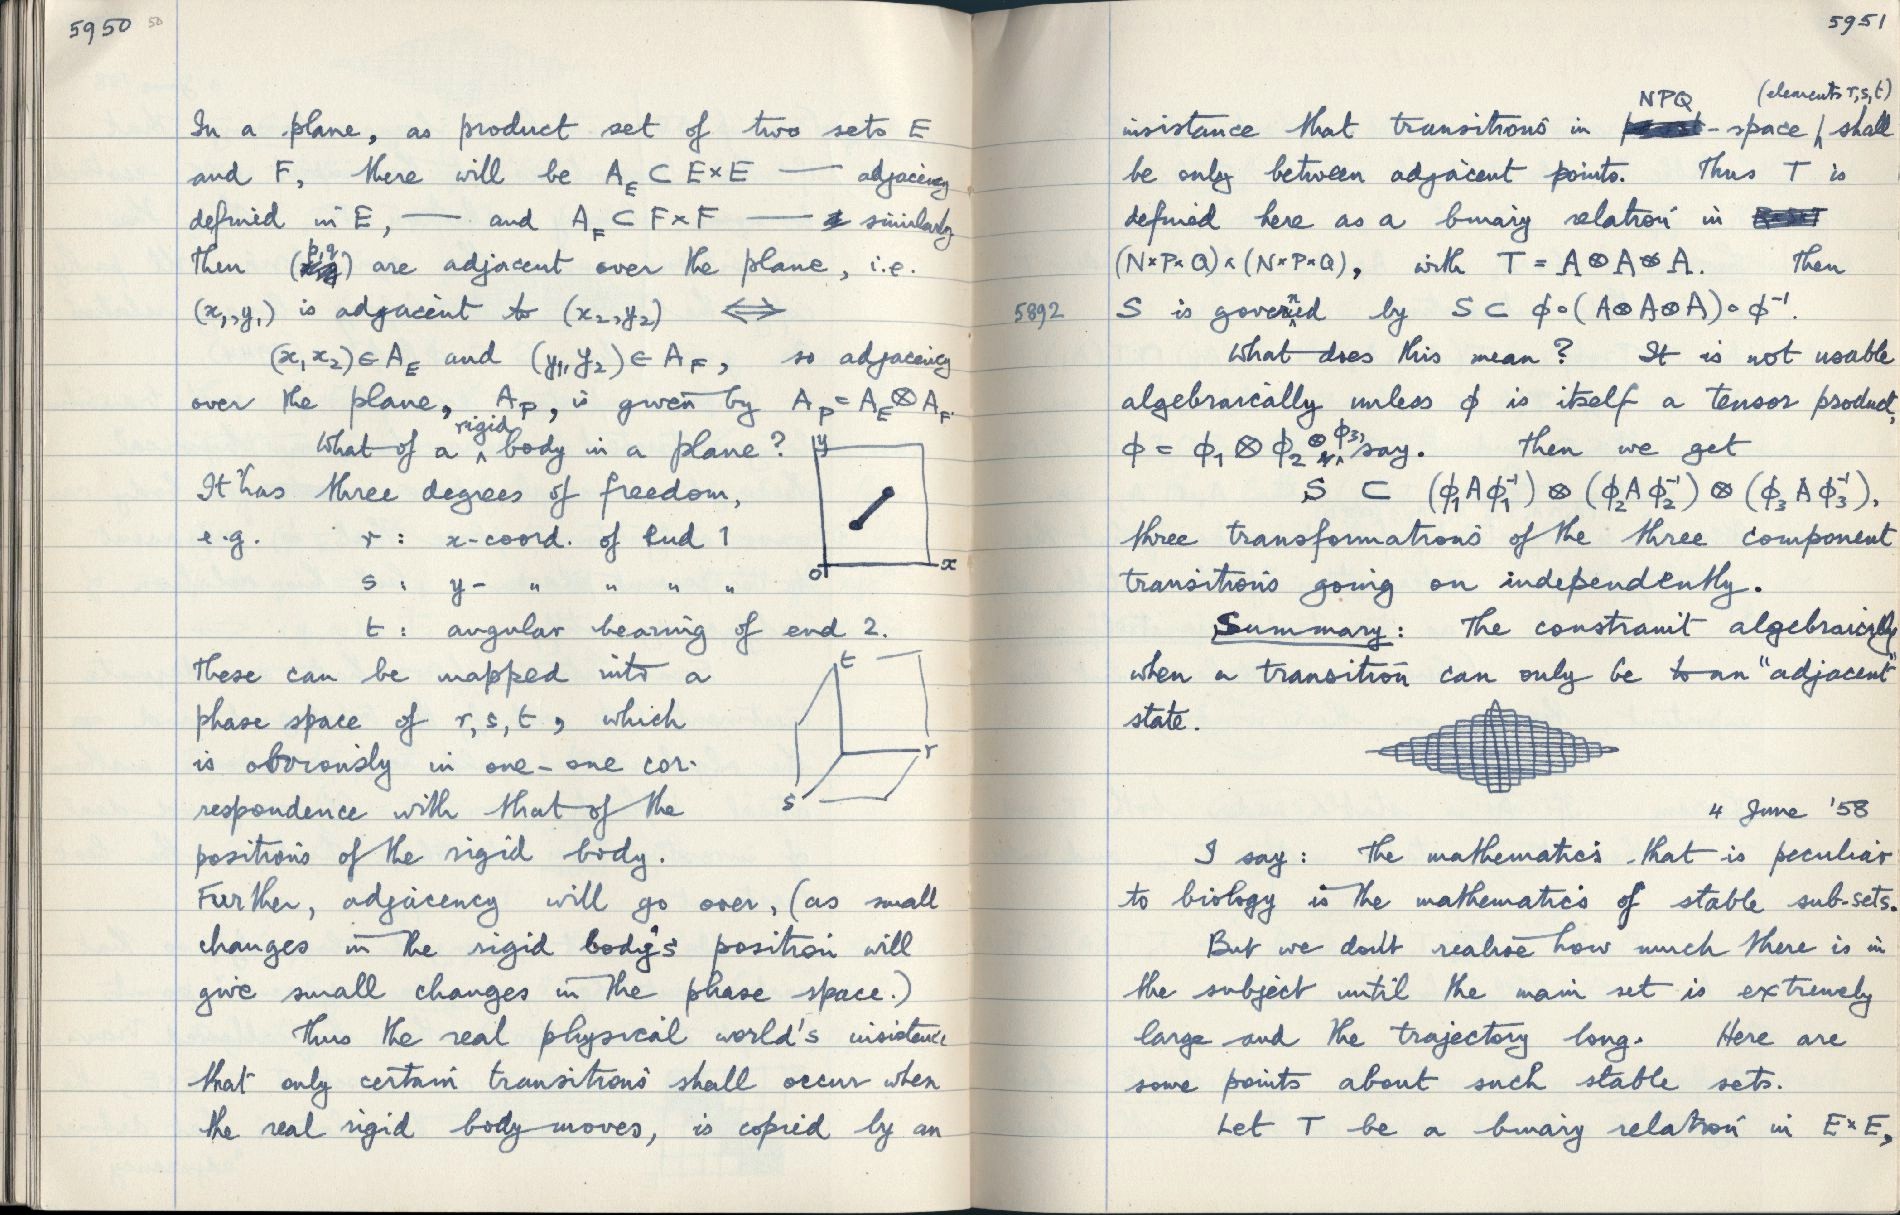 5950 50
In a plane, as product set of two sets E
and F, there will be A_E ⊂ E×E — adjacency
defined in E, — and A_F ⊂ F×F — similarly
Then (p,q) are adjacent over the plane, i.e.
(x₁,y₁) is adjacent to (x₂,y₂) ⟺
(x₁x₂)∈A_E and (y₁,y₂)∈A_F, so adjacency
over the plane, A_P, is given by A_P = A_E⊗A_F.
What of a rigid body in a plane?
y
It has three degrees of freedom,
e.g. r : x-coord. of End 1
o x
s : y- " " " "
t : angular bearing of end 2.
These can be mapped into a
t
phase space of r, s, t, which
is obviously in one-one cor-
r
respondence with that of the
s
positions of the rigid body.
Further, adjacency will go over, (as small
changes in the rigid body's position will
give small changes in the phase space.)
Thus the real physical world's insistence
that only certain transitions shall occur when
the real rigid body moves, is copied by an
5951
NPQ (elements r,s,t)
insistance that transitions in -space shall
be only between adjacent points. Thus T is
defined here as a binary relation in
(N×P×Q)×(N×P×Q), with T = A⊗A⊗A. Then
5892
S is governed by S ⊂ ϕ∘(A⊗A⊗A)∘ϕ⁻¹.
What does this mean? It is not usable
algebraically unless ϕ is itself a tensor product,
ϕ = ϕ₁⊗ϕ₂⊗ϕ₃, say. Then we get
S ⊂ (ϕ₁Aϕ₁⁻¹)⊗(ϕ₂Aϕ₂⁻¹)⊗(ϕ₃Aϕ₃⁻¹),
three transformations of the three component
transitions going on independently.
Summary: The constraint algebraically
when a transition can only be to an "adjacent"
state.
4 June '58
I say: The mathematics that is peculiar
to biology is the mathematics of stable sub-sets.
But we don't realise how much there is in
the subject until the main set is extremely
large and the trajectory long. Here are
some points about such stable sets.
Let T be a binary relation in E×E,